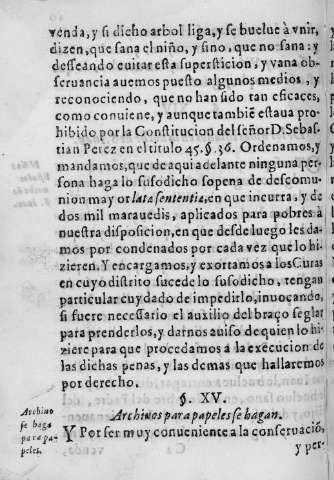 venda, y si dicho arbol liga, y se buelue à vnir,
dizen, que sana el niño, y sino, que no sana: y
desseando euitar esta supersticion, y vana ob-
seruancia auemos puesto algunos medios, y
reconociendo, que no han sido tan eficaces,
como conuiene, y aunque tambiē estaua pro-
hibido por la Constitucion del señor D. Sebas-
tian Perez en el titulo 45. §. 36. Ordenamos, y
mandamos, que de aqui adelante ninguna per-
sona haga lo susodicho sopena de descomu-
nion mayor lata sententia, en que incurra, y de
dos mil marauedis, aplicados para pobres à
nuestra disposicion, en que desde luego les da-
mos por condenados por cada vez que lo hi-
zieren. Y encargamos, y exortamos a los Curas
en cuyo distrito sucede lo susodicho, tengan
particular cuydado de impedirlo, inuocando,
si fuere necessario el auxilio del braço seglar
para prenderlos, y darnos auiso de quien lo hi-
ziere para que procedamos a la execucion de
las dichas penas, y las demas que hallaremos
por derecho.
§. XV.
Archiuos para papeles se hagan.
Archiuo
se haga
para pa-
peles.
Y Por ser muy conueniente a la conseruació,
y per-